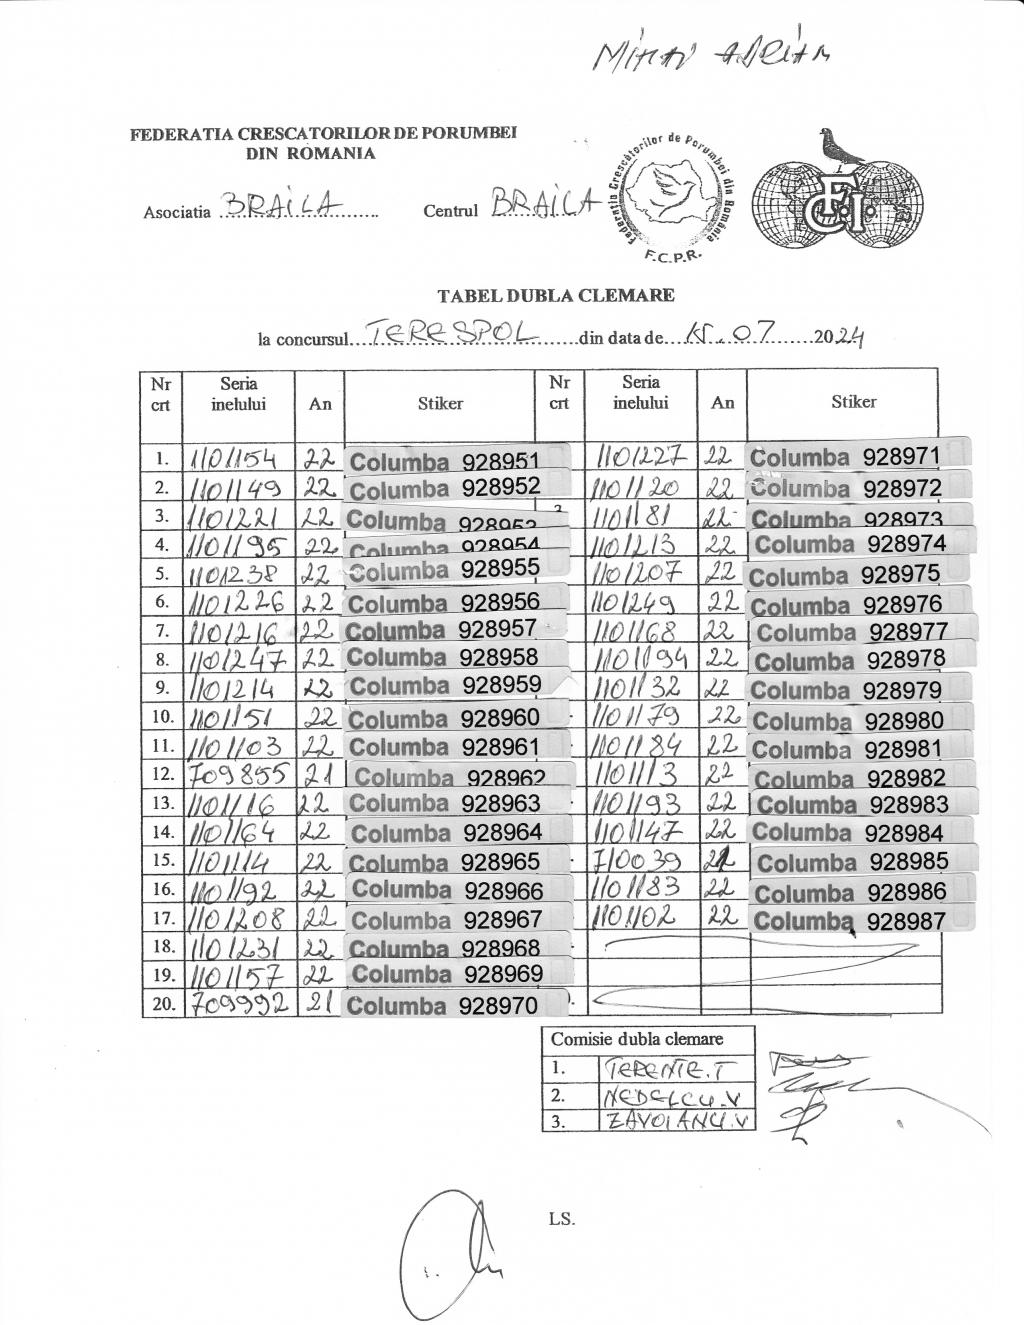 MIHAI ADRIAN
FEDERATIA CRESCATORILOR DE PORUMBEI
DIN ROMANIA
Asociatia BRAILA Centrul BRAILA
Federația Crescătorilor de Porumbei din România
F.C.P.R.
F.C.I.
TABEL DUBLA CLEMARE
la concursul TERESPOL din data de 15.07 2024
Nr crt Seria inelului An Stiker Nr crt Seria inelului An Stiker
1. 1101154 22 Columba 928951 1101227 22 Columba 928971
2. 1101149 22 Columba 928952 1101120 22 Columba 928972
3. 1101221 22 Columba 928953 3 1101181 22 Columba 928973
4. 1101195 22 Columba 928954 1101213 22 Columba 928974
5. 1101238 22 Columba 928955 1101207 22 Columba 928975
6. 1101226 22 Columba 928956 1101249 22 Columba 928976
7. 1101216 22 Columba 928957 1101168 22 Columba 928977
8. 1101247 22 Columba 928958 1101194 22 Columba 928978
9. 1101214 22 Columba 928959 1101132 22 Columba 928979
10. 1101151 22 Columba 928960 1101179 22 Columba 928980
11. 1101103 22 Columba 928961 1101184 22 Columba 928981
12. 709855 21 Columba 928962 1101113 22 Columba 928982
13. 1101116 22 Columba 928963 1101193 22 Columba 928983
14. 1101164 22 Columba 928964 1101147 22 Columba 928984
15. 1101114 22 Columba 928965 710039 21 Columba 928985
16. 1101192 22 Columba 928966 1101183 22 Columba 928986
17. 1101208 22 Columba 928967 1101102 22 Columba 928987
18. 1101231 22 Columba 928968
19. 1101157 22 Columba 928969
20. 709992 21 Columba 928970
Comisie dubla clemare
1. TERENTE.T
2. NEDELCU.V
3. ZAVOIANU.V
LS.